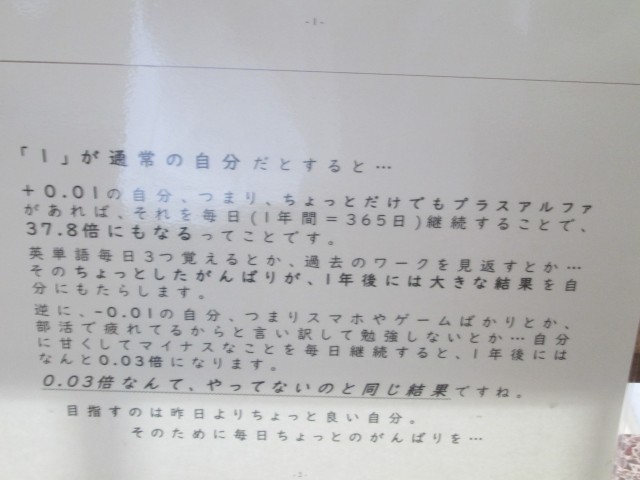 -1-
「1」が通常の自分だとすると…
+0.01の自分、つまり、ちょっとだけでもプラスアルファ
があれば、それを毎日(1年間=365日)継続することで、
37.8倍にもなるってことです。
英単語毎日3つ覚えるとか、過去のワークを見返すとか…
そのちょっとしたがんばりが、1年後には大きな結果を自
分にもたらします。
逆に、-0.01の自分、つまりスマホやゲームばかりとか、
部活で疲れてるからと言い訳して勉強しないとか…自分
に甘くしてマイナスなことを毎日継続すると、1年後には
なんと0.03倍になります。
0.03倍なんて、やってないのと同じ結果ですね。
目指すのは昨日よりちょっと良い自分。
そのために毎日ちょっとのがんばりを…
-2-